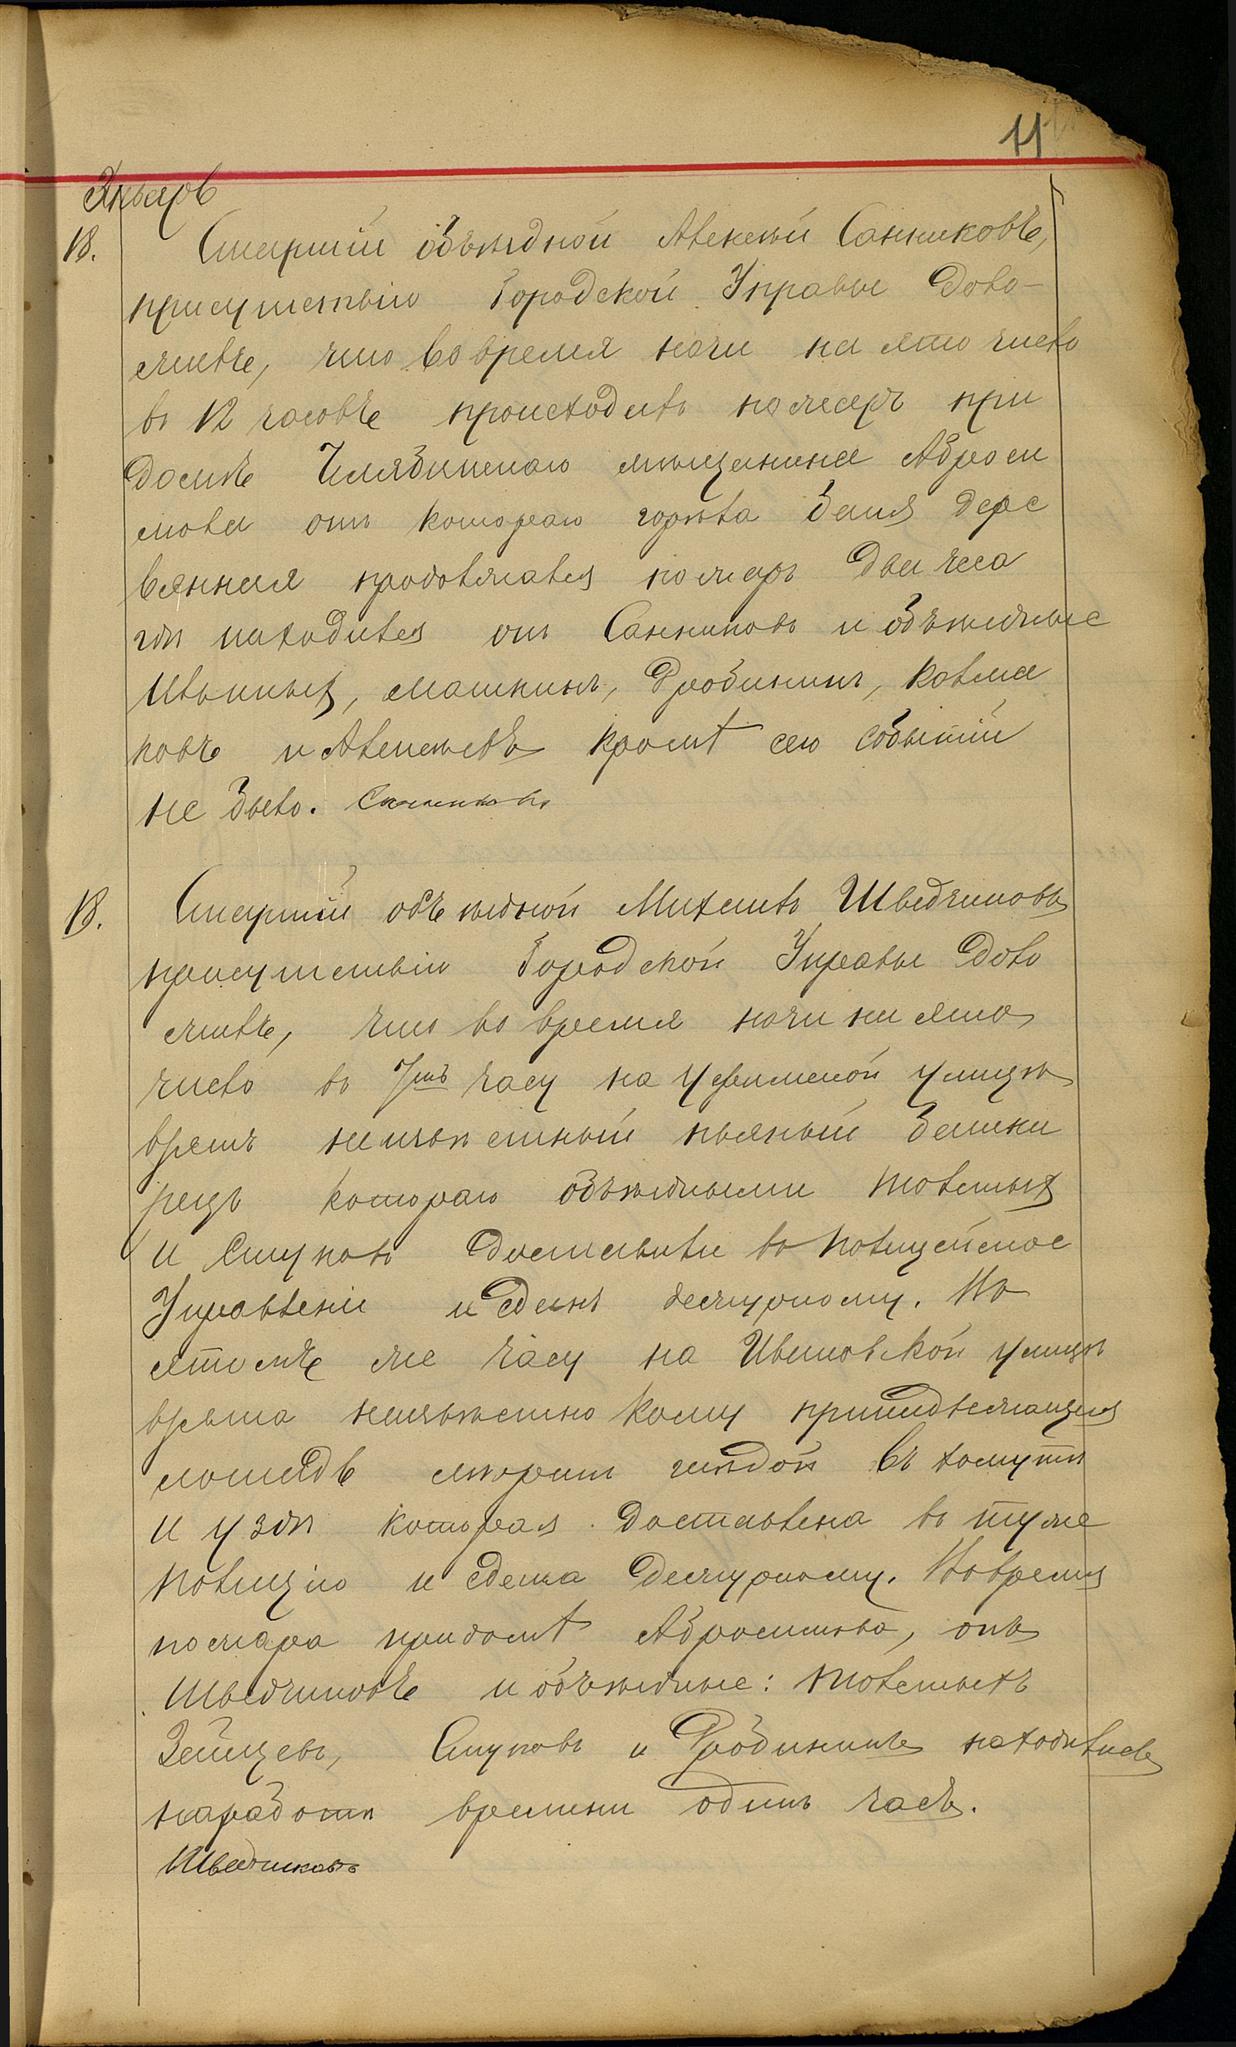 11
Январь
13. Старшiй объѣздной Алексѣй Санниковъ,
присутствiю Городской Управы доло-
житъ, что во время ночи на это число
въ 12 часовъ происходилъ пожаръ при
домѣ Челябинскаго мѣщанина Абросимова
мова отъ котораго горѣла баня дере
вянная продолжался пожаръ два часа
гдѣ находился онъ Санниковъ и объѣздные
Ивыныхъ, Машкинъ, Дробининъ, Колма
ковъ и Алексѣевъ кромѣ сего событiй
не было. Санниковъ
13. Старшiй объѣздной Михаилъ Шведчиковъ
присутствiю Городской Управы доло
житъ, что во время ночи на это
число въ 7мъ часу на Уфимской улицѣ
взятъ неизвѣстный пьяный башки
рецъ котораго объѣздными Толстыхъ
и Стуковъ доставили въ Полицейское
Управленiе и сданъ дежурному. Въ
этомъ же часу на Ивановской улицѣ
взята неизвѣстно кому принадлежащая
лошадь жеребецъ гнѣдой въ хомутѣ
и уздѣ которая доставлена въ туже
Полицiю и сдана дежурному. Вовремя
пожара придомѣ Абросимова, онъ
Шведчиковъ и объѣздные: Толстыхъ
Зайцевъ, Стуковъ и Дробининъ находились
наработѣ времени одинъ часъ.
Шведчиковъ